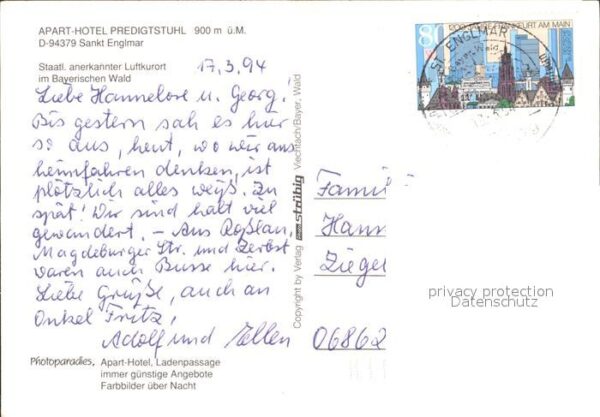 APART-HOTEL PREDIGTSTUHL 900 m ü.M.
D-94379 Sankt Englmar
Staatl. anerkannter Luftkurort
im Bayerischen Wald
17.3.94
Liebe Hannelore u. Georg!
Bis gestern sah es hier
so aus, heut, wo wir ans
heimfahren denken, ist
plötzlich alles weiß. Zu
spät! Wir sind halt viel
gewandert. – Aus Roßlau,
Magdeburger Str. und Zerbst
waren auch Busse hier.
Liebe Grüße, auch an
Onkel Fritz,
Adolf und Ellen
Photoparadies, Apart-Hotel, Ladenpassage
immer günstige Angebote
Farbbilder über Nacht
Copyright by Verlag strübig Viechtach/Bayer. Wald
ST. ENGLMAR
FRANKFURT AM MAIN
Famili
Hann
Ziegel
06862
privacy protection
Datenschutz